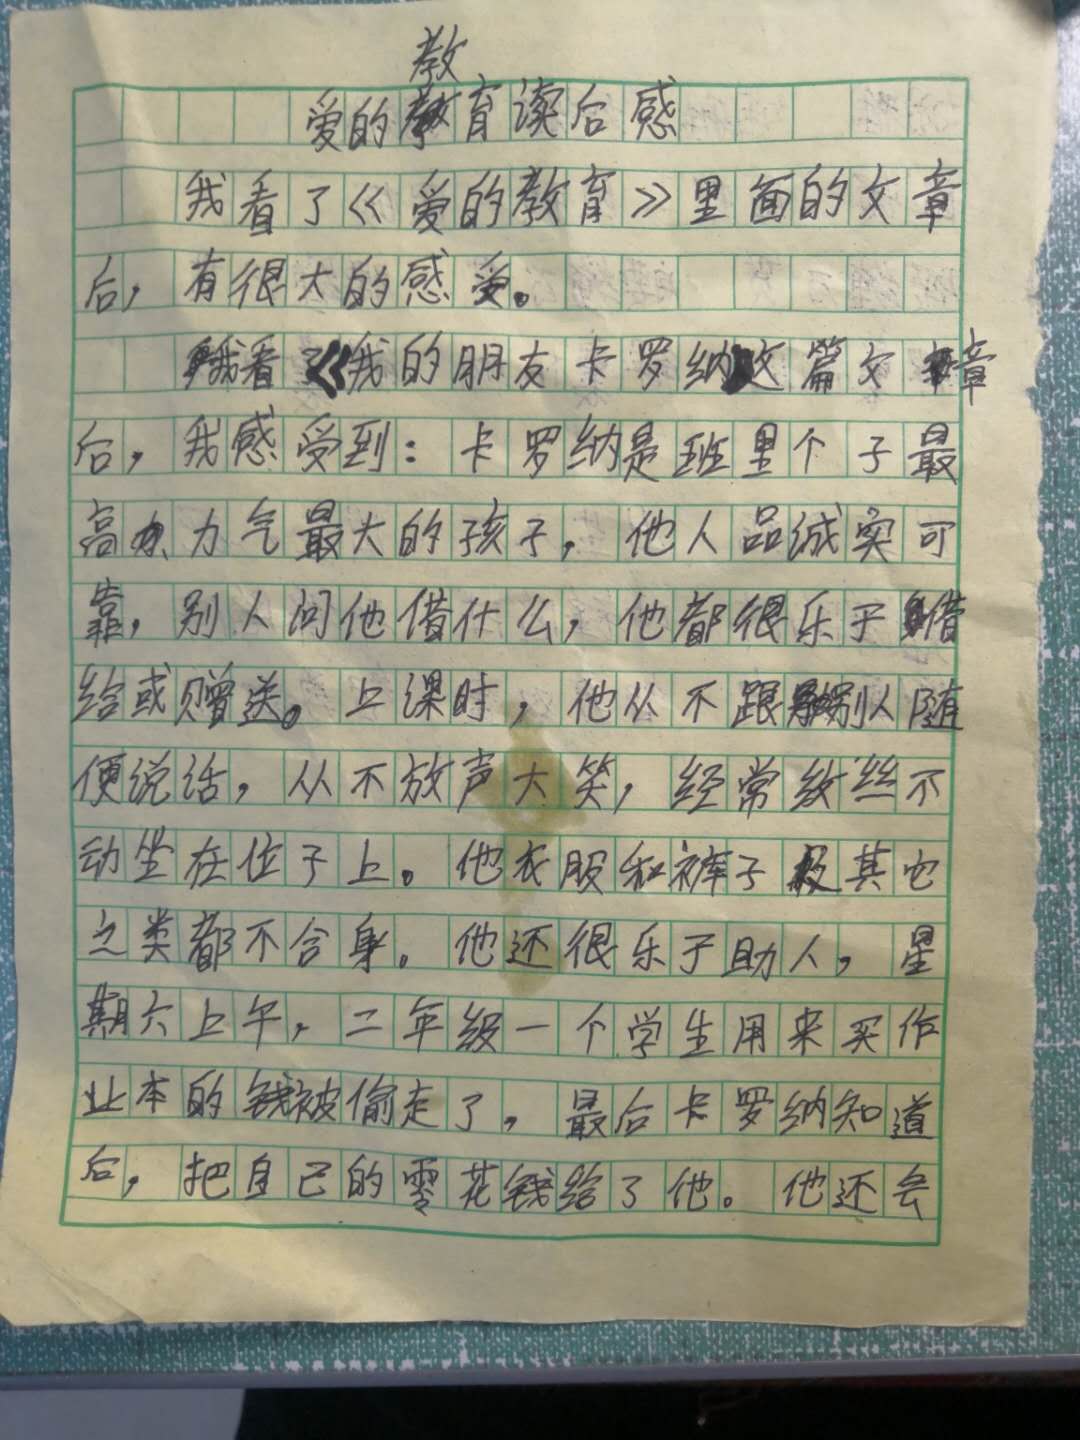 教
爱的教育读后感
我看了《爱的教育》里面的文章
后，有很大的感受。
我看了《我的朋友卡罗纳》这篇文章
后，我感受到：卡罗纳是班里个子最
高力气最大的孩子，他人品诚实可
靠，别人问他借什么，他都很乐于借
给或赠送。上课时，他从不跟别人随
便说话，从不放声大笑，经常纹丝不
动坐在位子上。他衣服和裤子及其它
之类都不合身。他还很乐于助人，星
期六上午，二年级一个学生用来买作
业本的钱被偷走了，最后卡罗纳知道
后，把自己的零花钱给了他。他还会